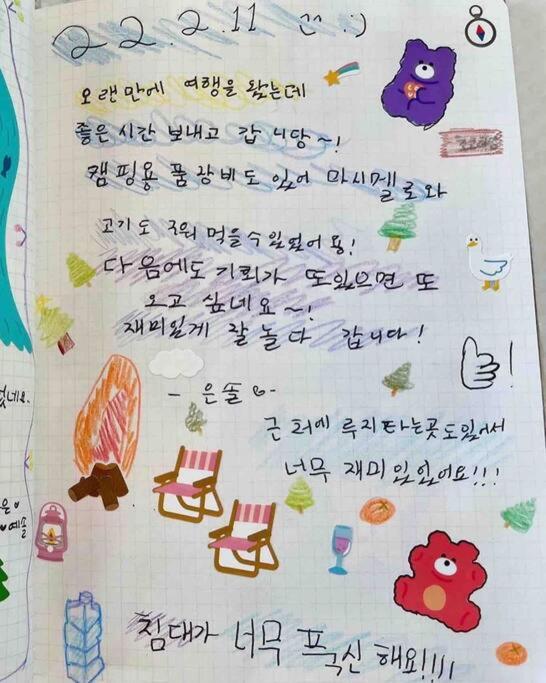 22.2.11 ^^ :)
오랜만에 여행을 왔는데
좋은 시간 보내고 갑니당~!
캠핑용품 장비도 있어 마시멜로와
고기도 구워 먹을 수 있었어용!
다음에도 기회가 또 있으면 또
오고 싶네요~!
재미있게 잘 놀다 갑니다!
- 은솔 -
근처에 루지타는곳도있어서
너무 재미있었어요!!!
침대가 너무 푹신해요!!!!